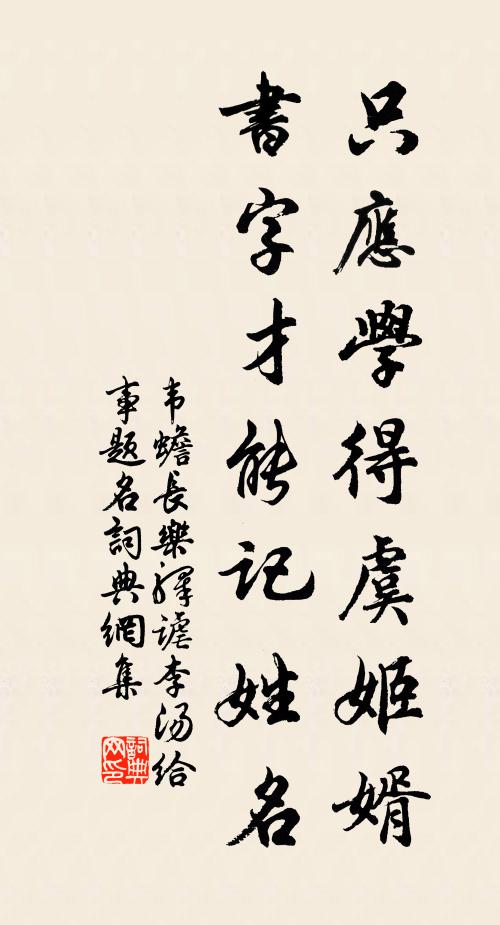 只應學得虞姬婿
書字才能記姓名
韦蟾長樂驛謔李湯給
事題名詞典網集
詞典
网印